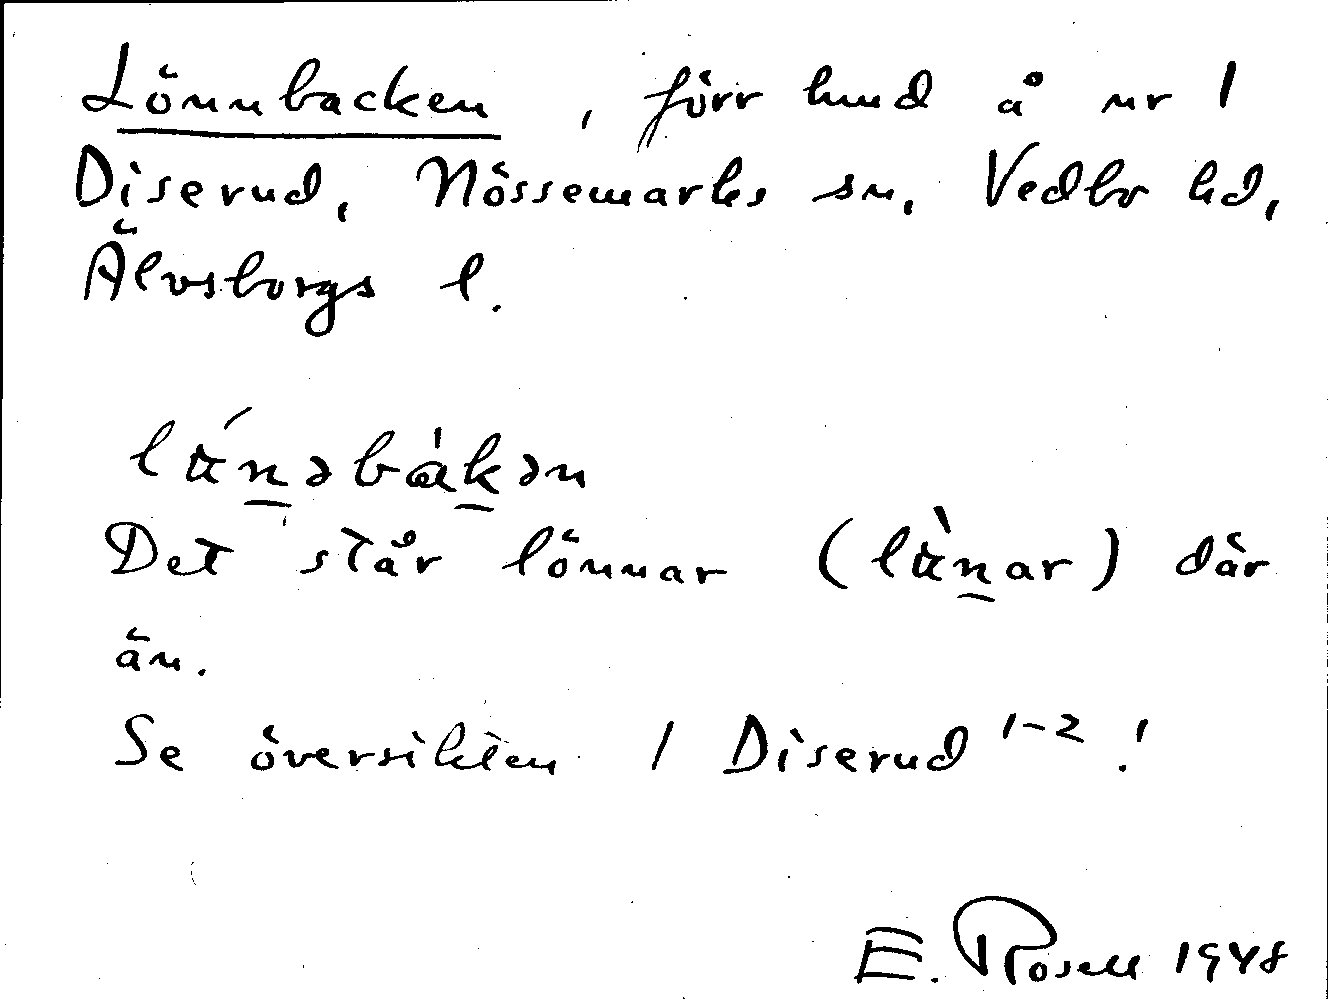 Lönnbacken, förr lmd å nr 1
Diserud, Nössemarks sn, Vedbo hd,
Älvsborgs l.
Det står lönnar där
än.
Se översikten 1 Diserud 1-2!
E. Rosell 1948